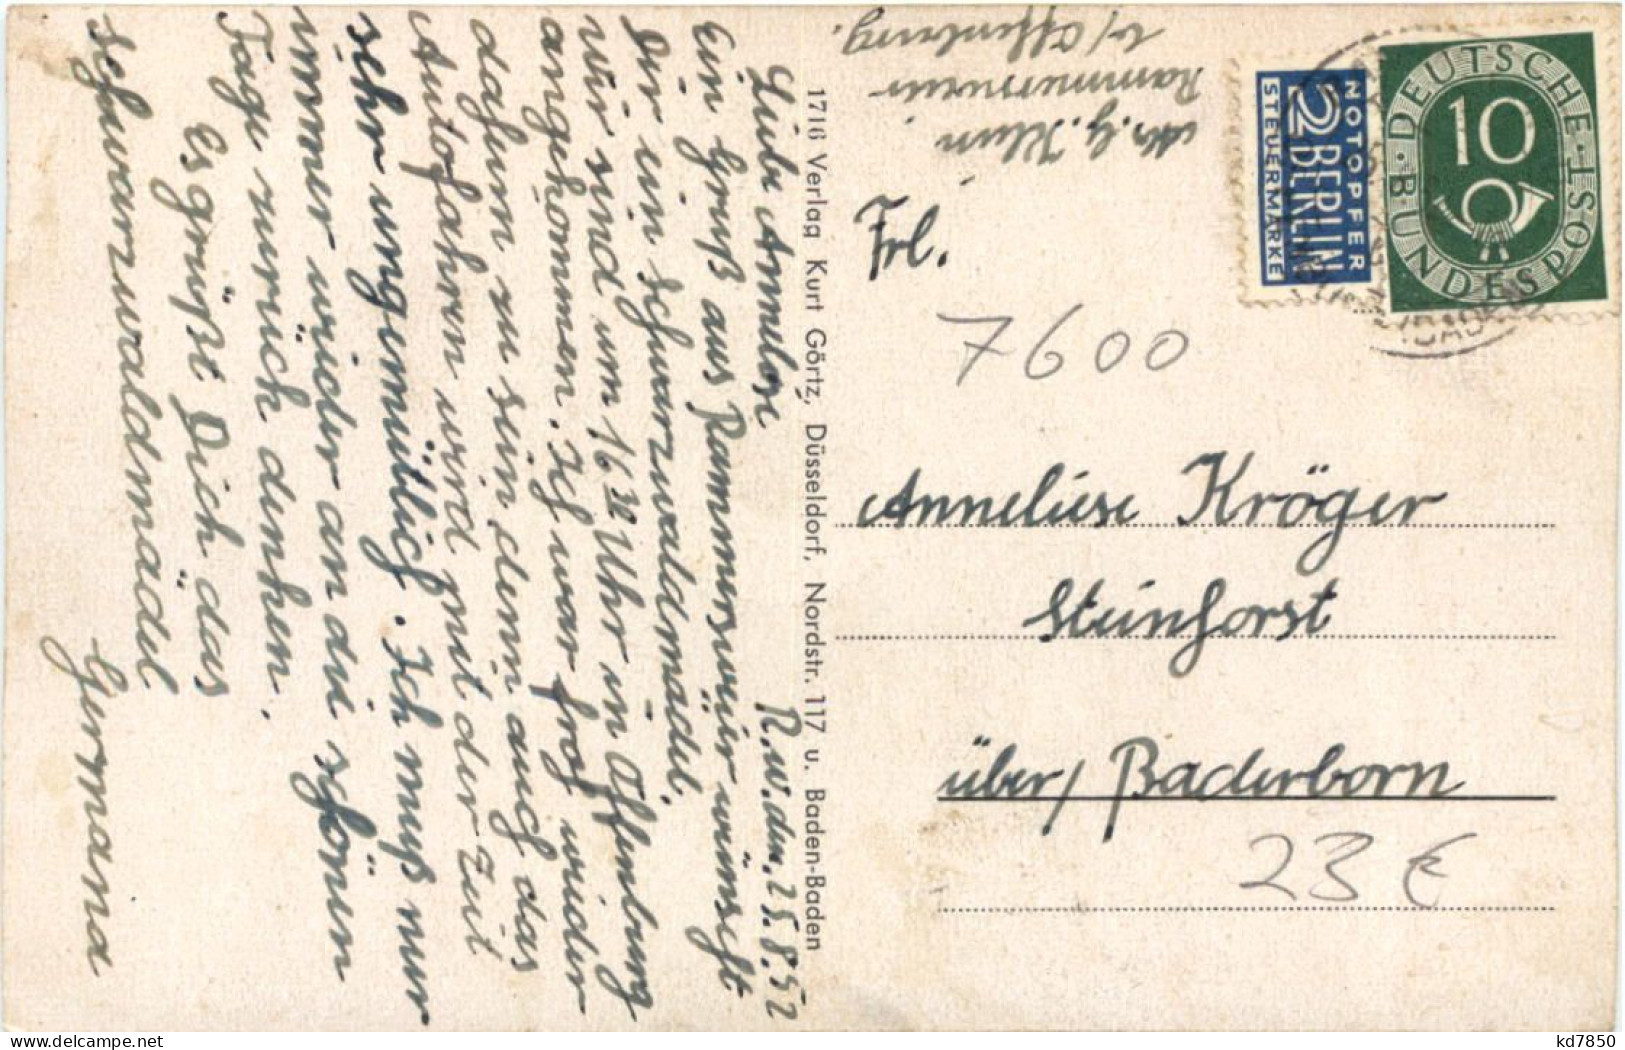 R.w. den. 25.8.52
Liebe Annelise
Ein Gruß aus Rammersweier wünscht
Dir ein Schwarzwaldmädel.
Wir sind um 16 32 Uhr in Offenburg
angekommen. Ich war froh wieder
daheim zu sein denn auch das
Autofahren wird mit der Zeit
sehr ungemütlich. Ich muß nur
immer wieder an die schönen
Tage zurück denken.
Es grüßt Dich das
Schwarzwaldmädel
Germana
1716 Verlag Kurt Görtz, Düsseldorf, Nordstr. 117 u. Baden-Baden
Rammersweier
b/ Offenburg.
NOTOPFER
2 BERLIN
STEUERMARKE
DEUTSCHE BUNDESPOST
10
Frl.
7600
Anneliese Kröger
Steinhorst
über/ Paderborn
23 €
www.delcampe.net
kd7850